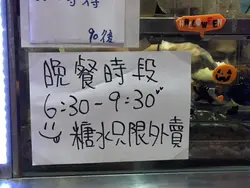 時待
90後
晚餐時段
6:30-9:30
糖水只限外賣